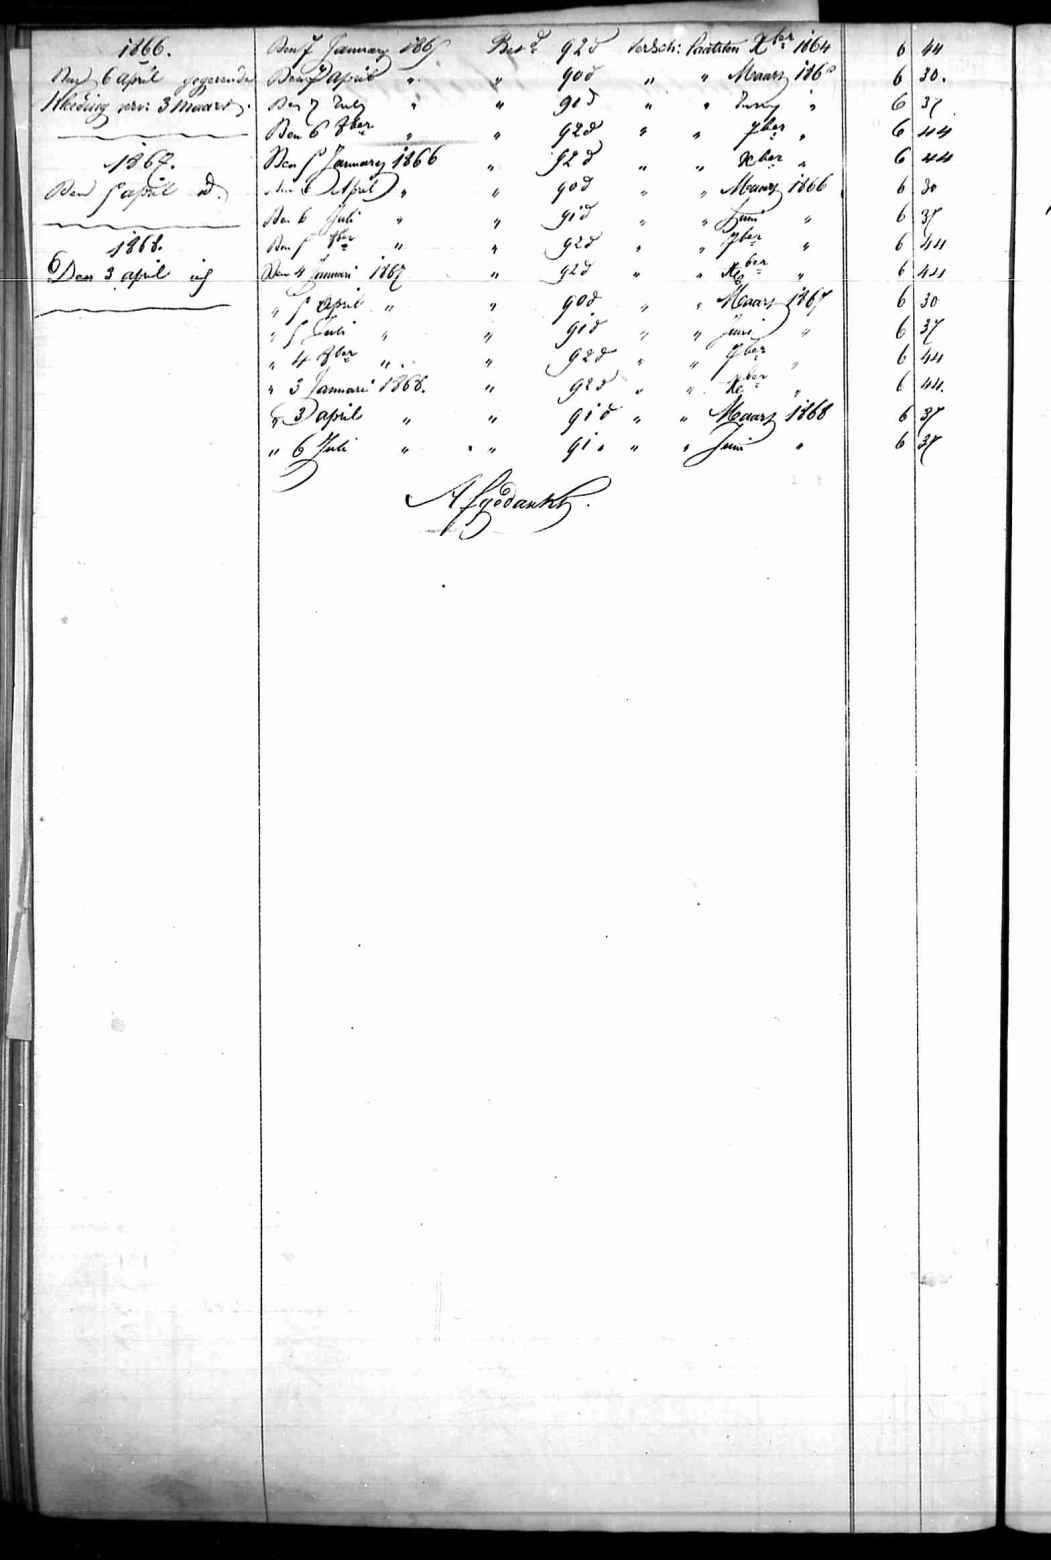 1866.
Den 6 april
Kleeding 3 maart.
1867.
Den 5 april id.
1868.
Den 3 april
Den 7 January 1865 Bet.d 92 d versch: Xber 1864 6 44
Den 7 april " " 90 d " " Maart 1865 6 30.
Den 7 July " " 91 d " " Juny " 6 37
Den 6 8ber " " 92 d " " 7ber " 6 44
Den 5 January 1866 " 92 d " " Xber " 6 44
Den 6 April " " 90 d " " Maart 1866 6 30
Den 6 Juli " " 91 d " " Juni " 6 37
Den 5 8ber " " 92 d " " 7ber " 6 44
Den 4 Januari 1867 " 92 d " " Xber " 6 44
" 5 April " " 90 d " " Maart 1867 6 30
" 5 Juli " " 91 d " " Juni " 6 37
" 4 8ber " " 92 d " " 7ber " 6 44
" 3 Januari 1868. " 92 d " " Xber " 6 44.
" 3 april " " 91 d " " Maart 1868 6 37
" 6 Juli " " 91 " " " Juni " 6 37
Afgedankt.